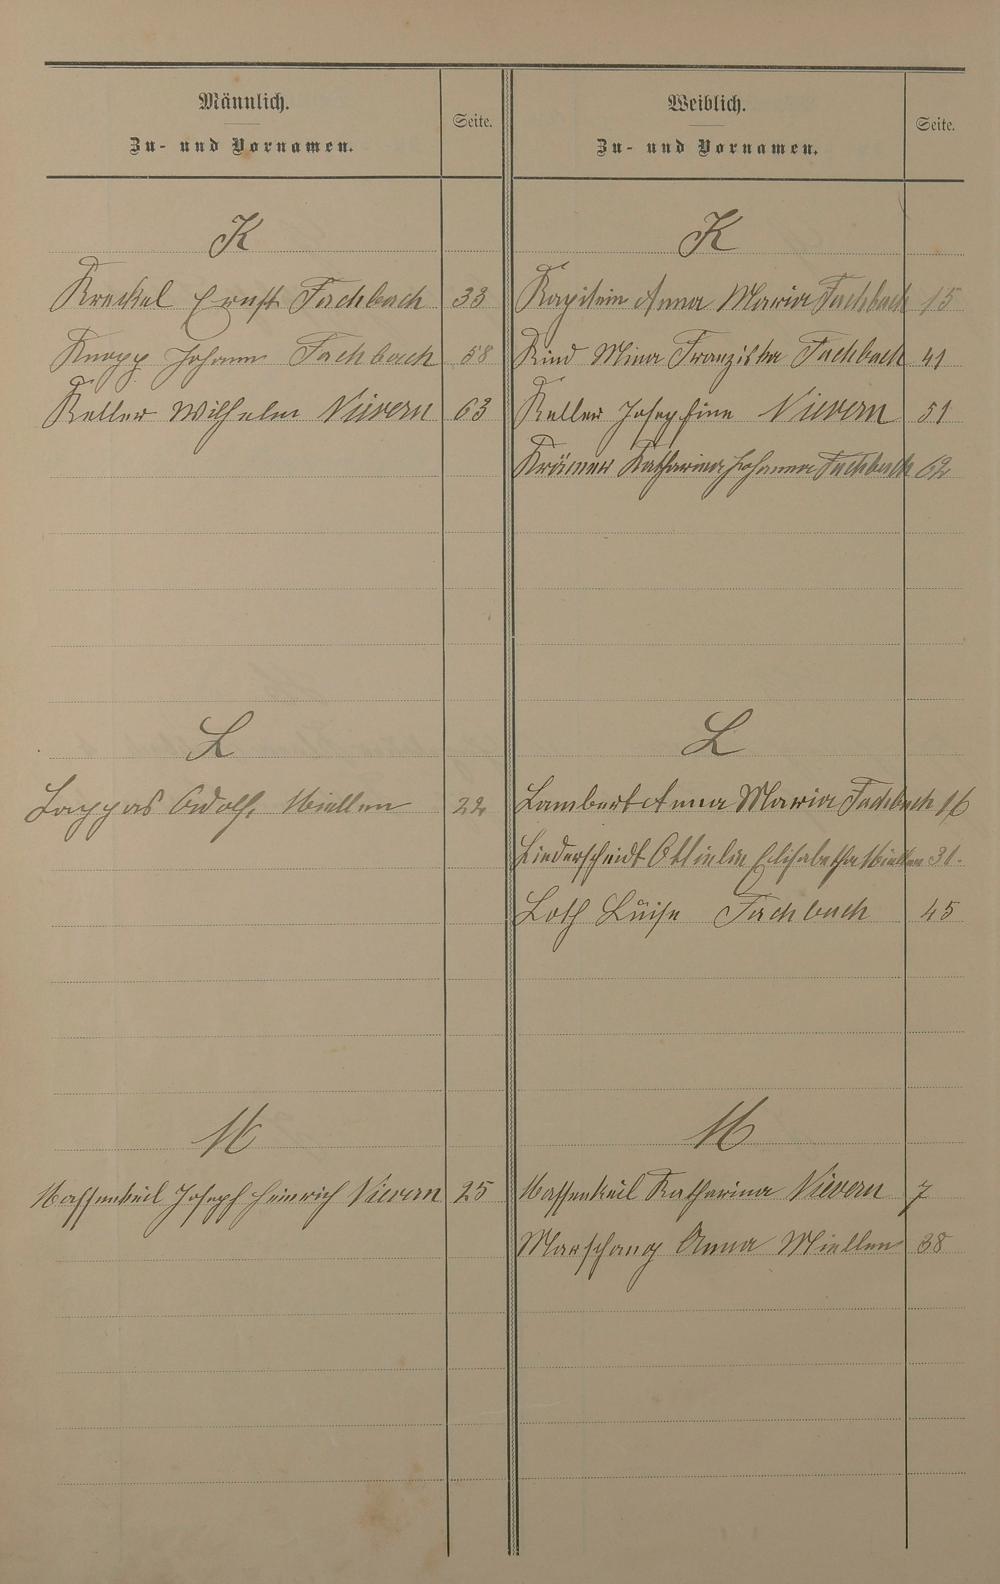 Männlich.
Zu- und Vornamen.
Seite.
K
Kreckel Ernst Fachbach 33
Knopp Johann Fachbach 58
Keller Wilhelm Nievern 63
L
Lappas Adolf, Miellen 22
M
Massenkeil Joseph Heinrich Nievern 25
Weiblich.
Zu- und Vornamen.
Seite.
K
Kapitein Anna Maria Fachbach 15
Kind Mina Franziska Fachbach 41
Keller Josephine Nievern 51
Krämer Katharina Johanna Fachbach 62
L
Lambert Anna Maria Fachbach 16
Liederscheidt Ottielie Elisabetha Miellen 31.
Loth Luise Fachbach 45
M
Massenkeil Katharina Nievern 7
Marschang Anna Miellen 38